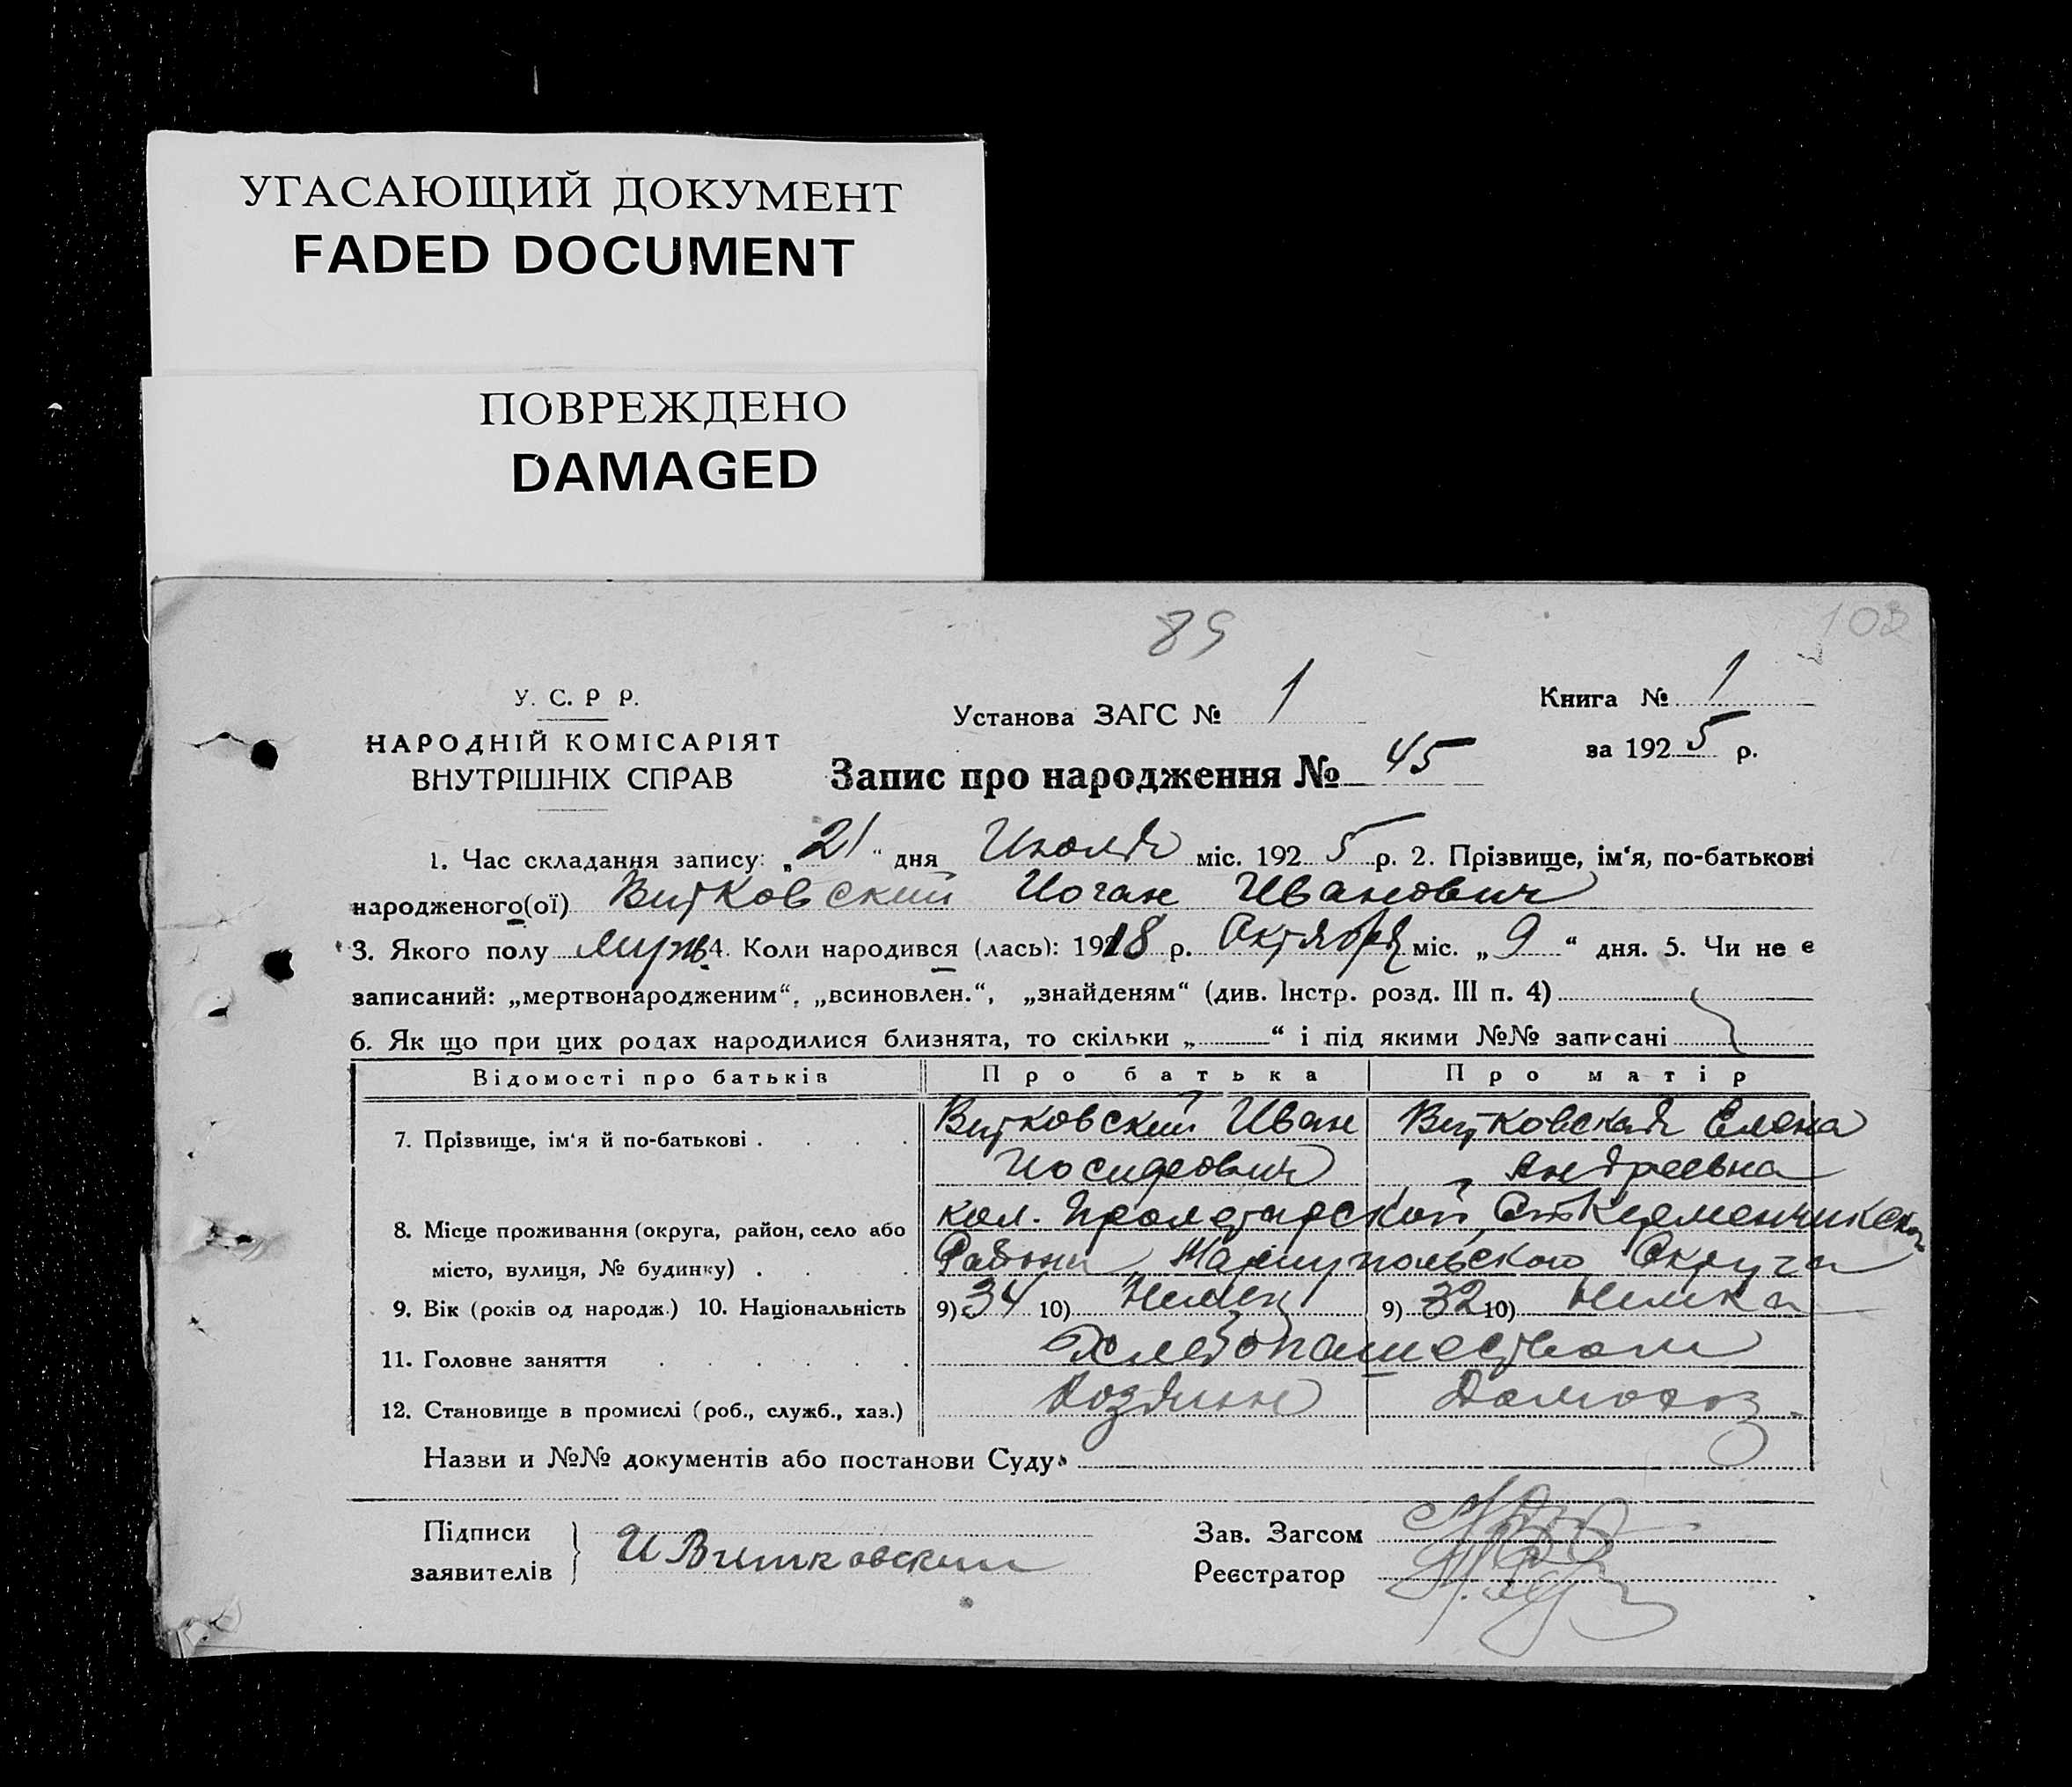 УГАСАЮЩИЙ ДОКУМЕНТ
FADED DOCUMENT
ПОВРЕЖДЕНО
DAMAGED
89
103
У. С. Р Р.
НАРОДНІЙ КОМІСАРІЯТ
ВНУТРІШНІХ СПРАВ
Установа ЗАГС № 1
Книга № 1
за 1925 р.
Запис про народження № 45
1. Час складання запису: „21“ дня Июля міс. 1925 р. 2. Прізвище, ім‘я, по-батькові
народженого(ої) Витковский Иоган Иванович
3. Якого полу муж. 4. Коли народився (лась): 1918 р. Октября міс. „9“ дня. 5. Чи не є
записаний: „мертвонародженим“, „всиновлен.“, „знайденям“ (див. Інстр. розд. III п. 4)
6. Як що при цих родах народилися близнята, то скільки „ “ і під якими №№ записані
Відомості про батьків Про батька Про матір
7. Прізвище, ім‘я й по-батькові . . . . Витковский Иван Витковская Елена
Иосифович Андреевна
8. Місце проживання (округа, район, село або кол. Пролетарской, Ст Керменчикского
місто, вулиця, № будинку) . . . Района, Мариупольского Округа
9. Вік (років од народж.) 10. Національність 9) 34 10) Немец 9) 32 10) Немка
11. Головне заняття . . . . . . Хлебопашеством
12. Становище в промислі (роб., служб., хаз.) Хозяин Домохоз.
Назви и №№ документів або постанови Суду
Підписи
заявителів
И Витковский
Зав. Загсом
Реєстратор